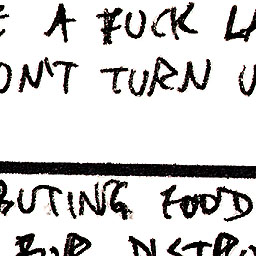 E A FUCK LA
ON'T TURN U
BUTING FOOD
FOR DISTRU